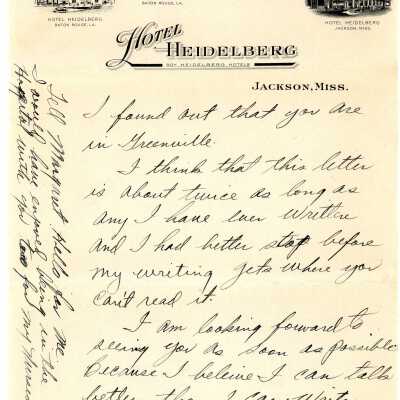 HOTEL HEIDELBERG
BATON ROUGE, LA.
BATON ROUGE, LA.
HOTEL HEIDELBERG
JACKSON, MISS.
HOTEL HEIDELBERG
ROY HEIDELBERG HOTELS
JACKSON, MISS.
I found out that you are
in Greenville.
I think that this letter
is about twice as long as
any I have ever written
and I had better stop before
my writing gets where you
can't read it.
I am looking forward to
seeing you as soon as possible
because I beleive I can talk
better than I can write
Tell Margaret Hello for me
I would have enjoyed being in the
Hospital with you for my nurse